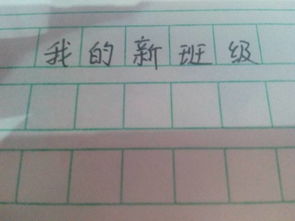 我的新班级